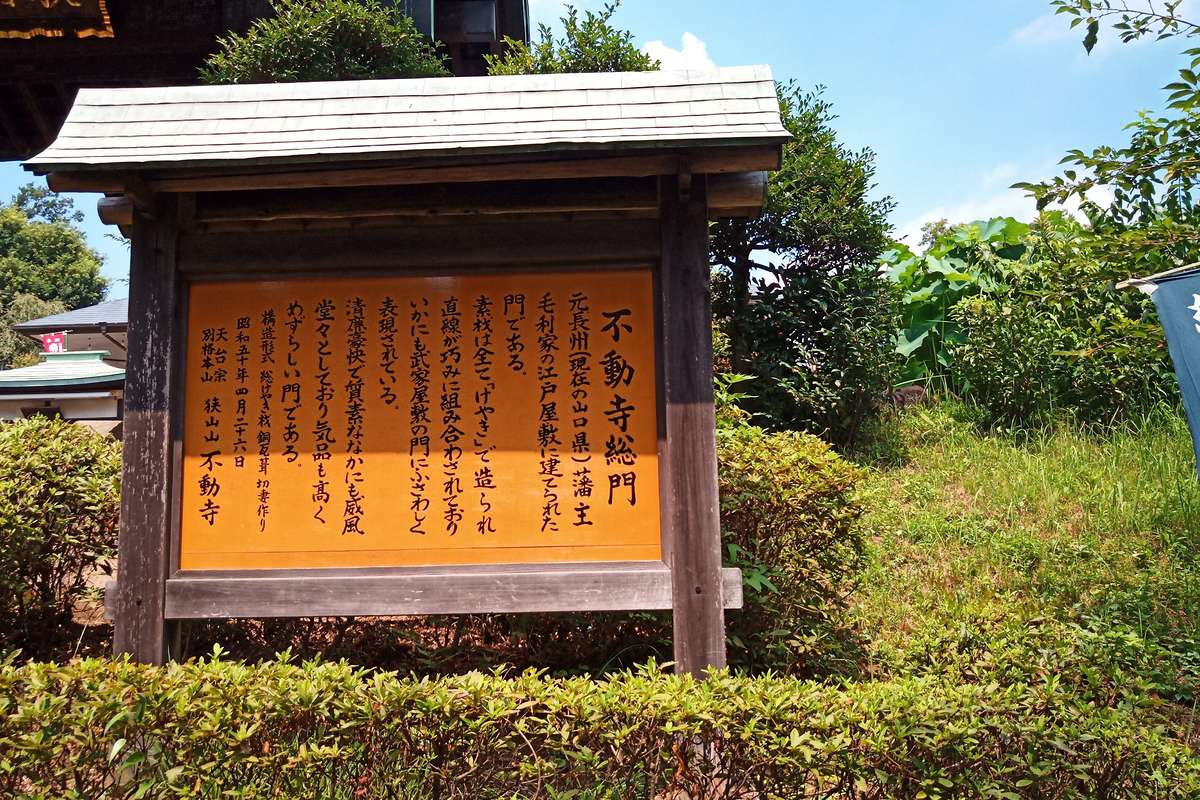 不動寺総門
元長州(現在の山口県)藩主
毛利家の江戸屋敷に建てられた
門である。
素材は全て「けやき」で造られ
直線が巧みに組み合わされており
いかにも武家屋敷の門にふさわしく
表現されている。
清廉豪快で質素ななかにも威風
堂々としており気品も高く
めずらしい門である。
構造様式 総けやき材 銅瓦葺 切妻作り
昭和五十年四月二十六日
天台宗
別格本山 狭山山 不動寺